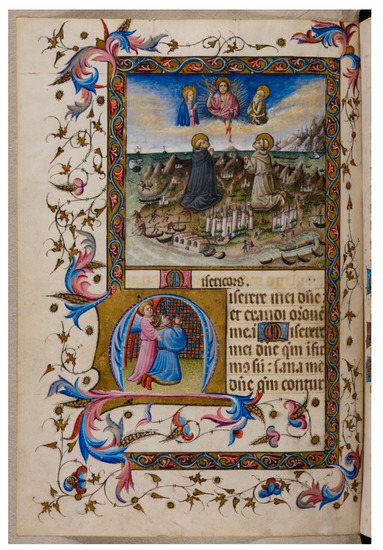 Misericors.
Miserere mei dñe
et exaudi oroñe
meā. Miserere
mei dñe qm̄ ifir
mus sū: sana me
dñe qm̄ contur